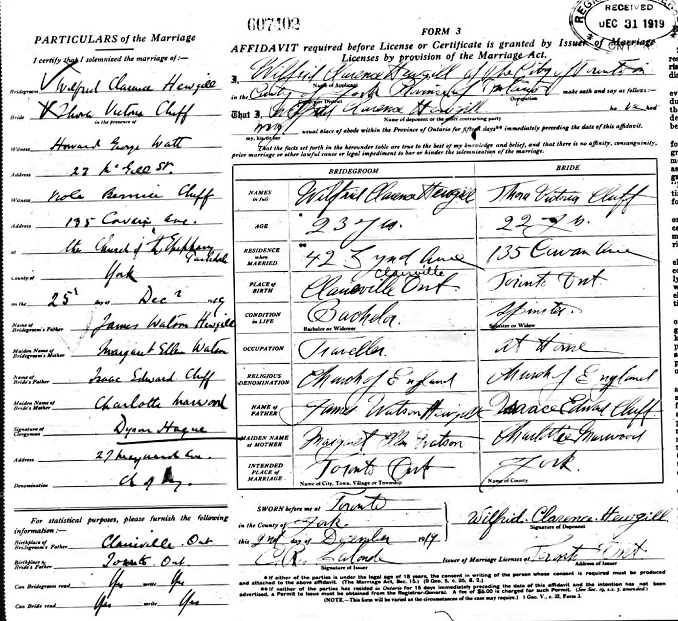 607402
RECEIVED
DEC 31 1919
PARTICULARS of the Marriage
I certify that I solemnized the marriage of:—
Bridegroom Wilfred Clarence Hewgill
Bride Thora Victoria Cluff
in the presence of
Witness Howard George Watt
Address 27 McGill St.
Witness Viola Bernice Cluff
Address 135 Cowan Ave.
at the Church of the Epiphany
Parkdale
County of York
on the 25 day of Dec 1919
Name of Bridegroom's Father James Watson Hewgill
Maiden Name of Bridegroom's Mother Margaret Ellen Watson
Name of Bride's Father Isaac Edward Cluff
Maiden Name of Bride's Mother Charlotte Marwood
Signature of Clergyman Dyson Hague
Address 27 Ave.
Denomination Ch of Eng.
For statistical purposes, please furnish the following
information:—
Birthplace of Bridegroom's Father Claireville Ont
Birthplace of Bride's Father Toronto Ont
Can Bridegroom read Yes write Yes
Can Bride read Yes write Yes
FORM 3
AFFIDAVIT required before License or Certificate is granted by Issuer of Marriage
Licenses by provision of the Marriage Act.
I, Wilfrid Clarence Hewgill of the City of Toronto
Name of Applicant
in the County of York Province of Ontario make oath and say as follows:—
County or District Occupation
That I Wilfrid Clarence Hewgill have had
Name of deponent or the other contracting party
my usual place of abode within the Province of Ontario for fifteen days** immediately preceding the date of this affidavit.
my, his or her
That the facts set forth in the hereunder table are true to the best of my knowledge and belief, and that there is no affinity, consanguinity,
prior marriage or other lawful cause or legal impediment to bar or hinder the solemnization of the marriage.
BRIDEGROOM BRIDE
NAMES in full Wilfrid Clarence Hewgill Thora Victoria Cluff
AGE 23 yrs. 22 yrs.
RESIDENCE WHEN MARRIED ** 42 Lynd Ave 135 Cowan Ave
Claireville
PLACE OF BIRTH Claireville Ont Toronto Ont
CONDITION IN LIFE Bachelor. Spinster.
Bachelor or Widower Spinster or Widow
OCCUPATION Traveller. At Home
RELIGIOUS DENOMINATION Church of England Church of England
NAME OF FATHER James Watson Hewgill Isaac Edward Cluff.
MAIDEN NAME OF MOTHER Margaret Ellen Watson Charlotte Marwood
INTENDED PLACE OF MARRIAGE Toronto Ont York.
Name of City, Town, Village or Township Name of County
SWORN before me at Toronto
in the County of York.
this 2nd day of December 1919
Wilfrid. Clarence. Hewgill
Signature of Deponent
Issuer of Marriage Licenses at Toronto Ont
Signature of Issuer Address of Issuer
* If either of the parties is under the legal age of 18 years, the consent in writing of the person whose consent is required must be produced
and attached to the above affidavit. (The Marriage Act, Sec. 15.) (9 Geo. 5, c. 35, S. 2.)
** If neither of the parties has resided in Ontario for 15 days immediately preceding the date of this affidavit and the intention has not been
advertised, a Permit to issue must be obtained from the Registrar-General. A fee of $5.00 is charged for such Permit. (See Sec. 19, s.s. 3 amended.)
(NOTE.—This form will be varied as the circumstances of the case may require.) 1 Geo. V., c. 32, Form 3.